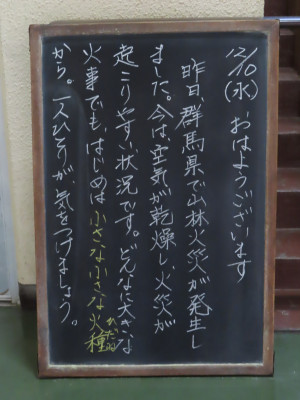 12/10(水) おはようございます
昨日、群馬県で山林火災が発生し
ました。今は空気が乾燥し、火災が
起こりやすい状況です。どんなに大きな
火事でも、はじめは小さな小さな火種
だね
から。一人ひとりが、気をつけましょう。